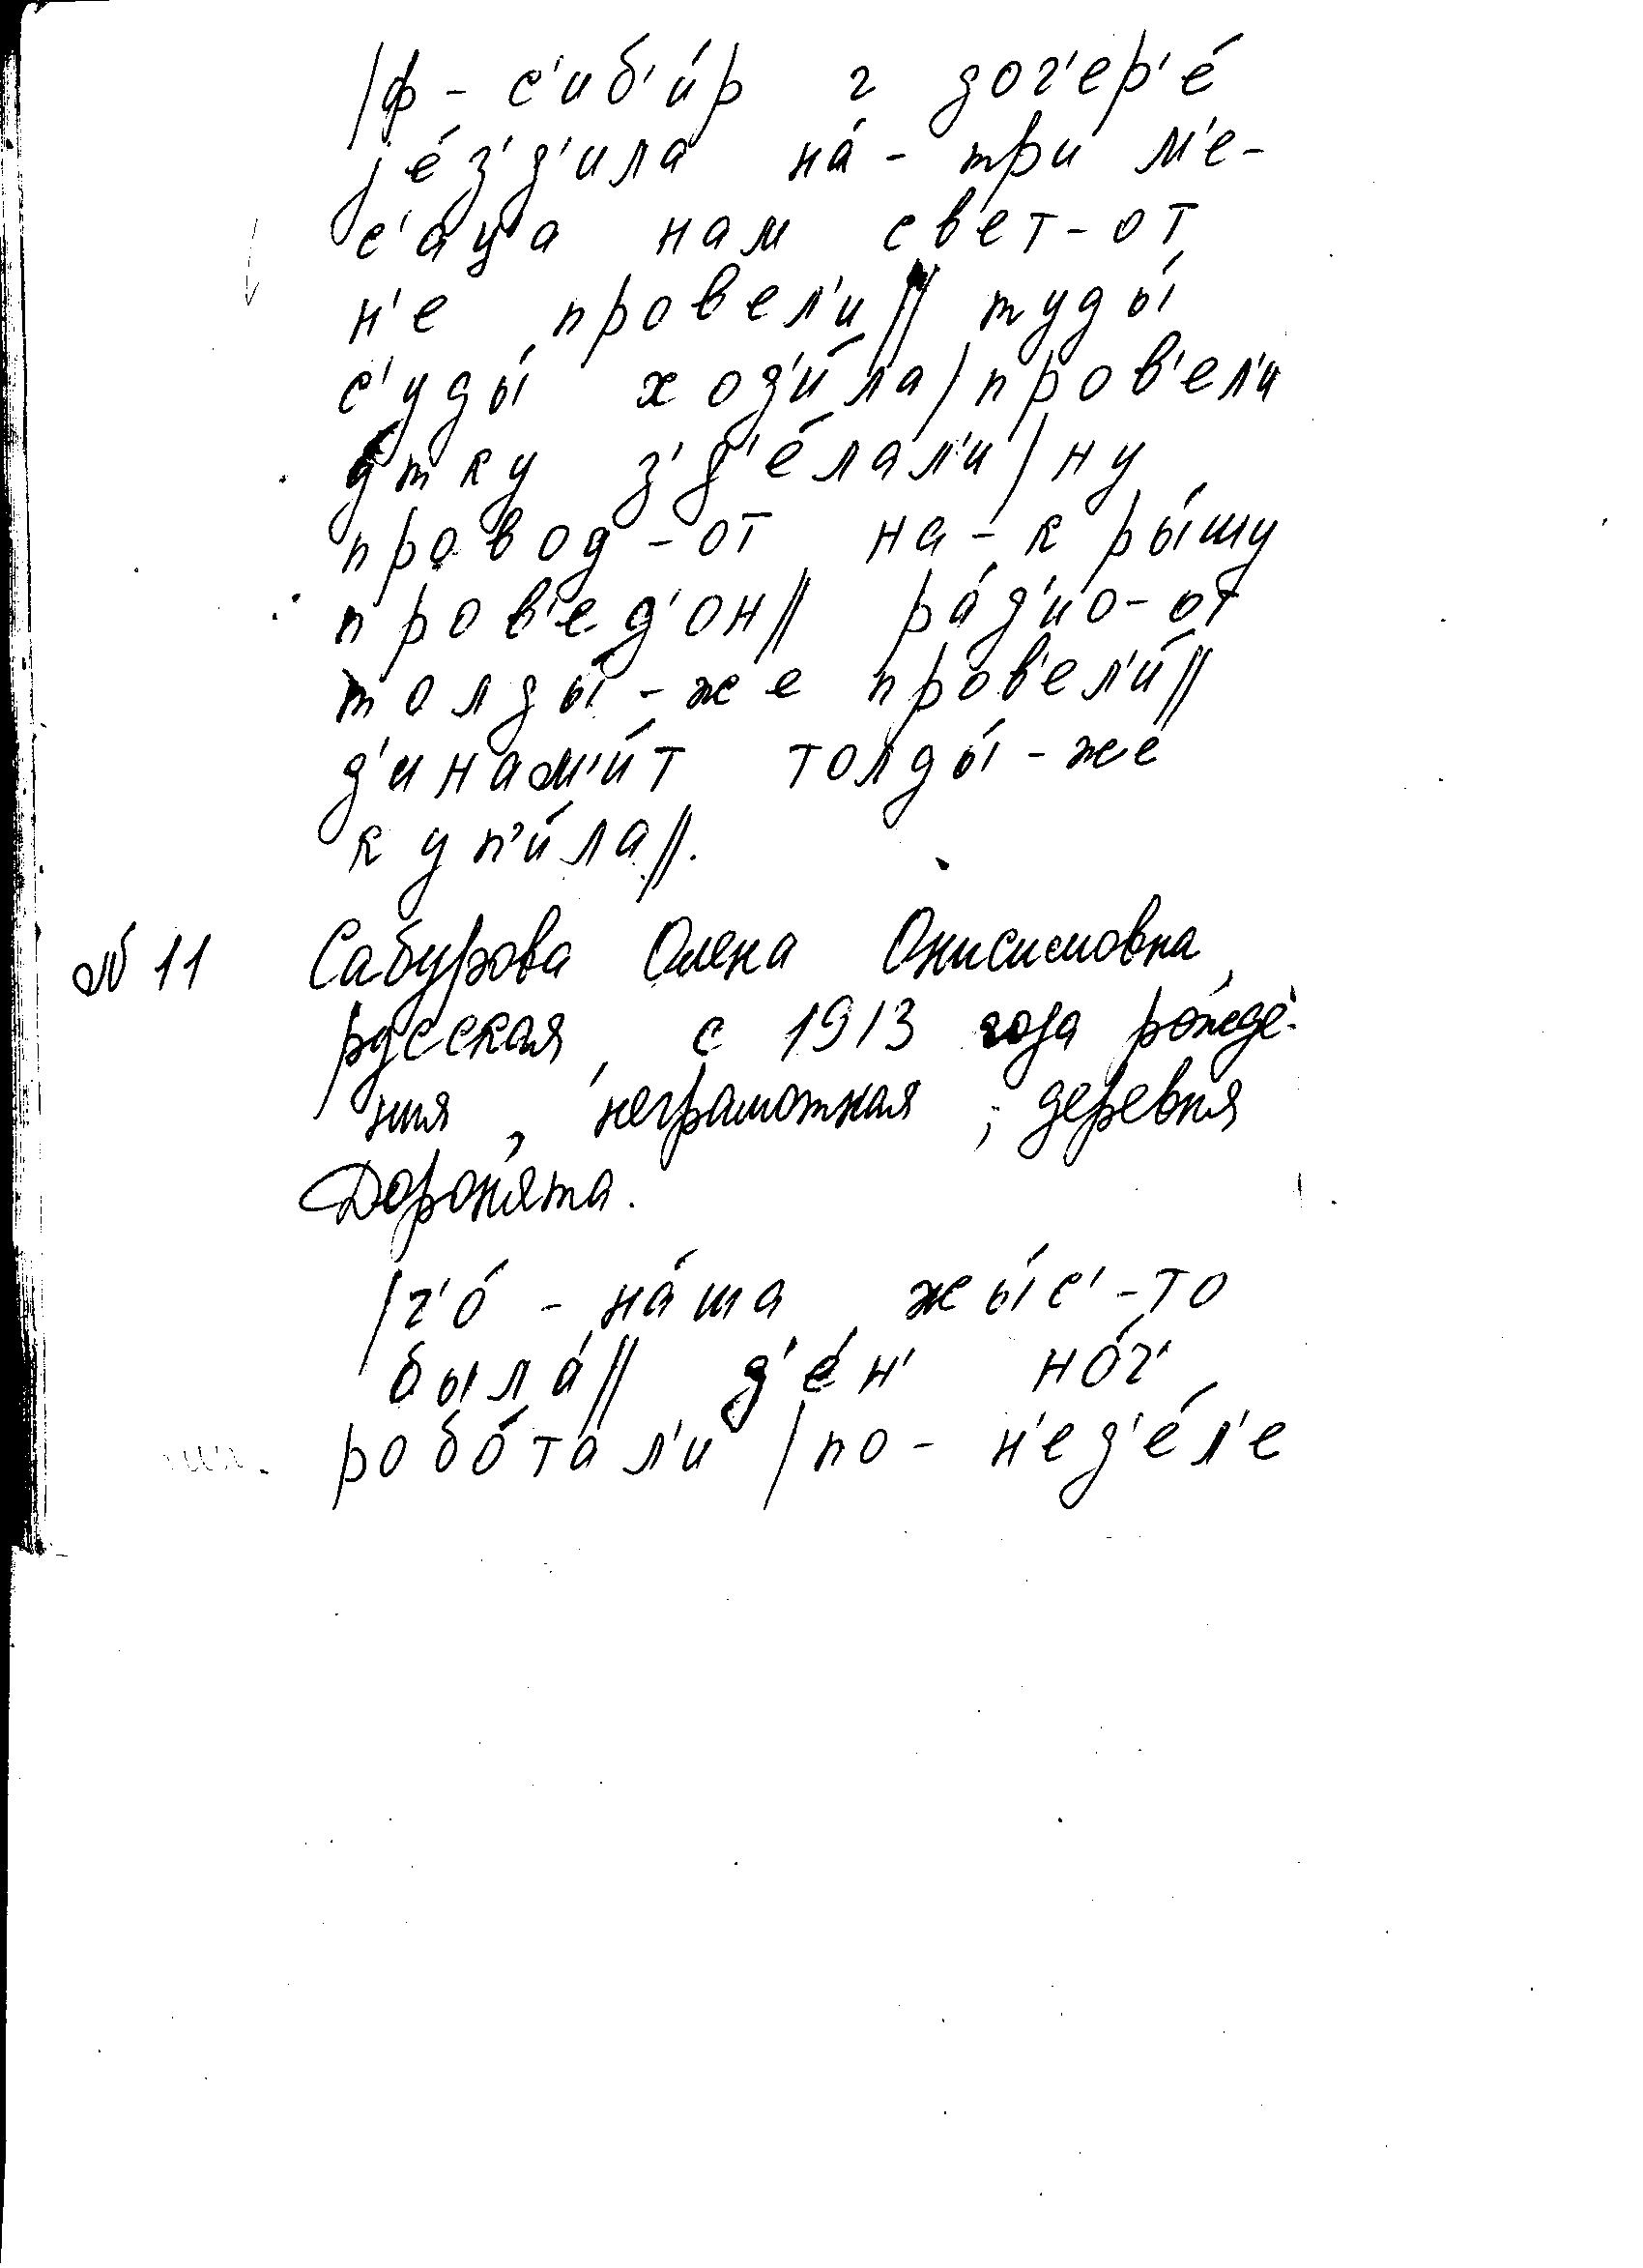 /ф - с'иб'и́р г дог'ер'е́
jе́з'д'ила на́ - три м'е-
с'аца нам свет-от
н'е провел'и// туды́
с'уды́ ход'и́ла / пров'ел'и
у́тку з'д'е́лал'и / ну
провод-от на-кры́шу
пров'ед'он// ра́д'ио-от
толды́-же пров'ел'и́//
д'инам'и́т толды́-же
куп'и́ла//.
№ 11 Сабурова Олена Онисимовна,
русская, с 1913 года рожде-
ния, неграмотная; деревня
Доронята.
/г'о́ - на́ша жы́с'-то
была́// д'е́н' но́г'
робо́тал'и / по- н'ед'е́л'е